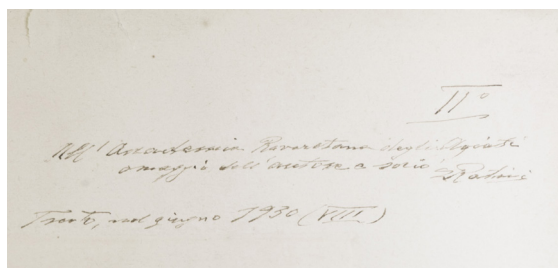 II°
All' Accademia Roveretana degli Agiati
omaggio dell'autore e socio
GRatini
Trento, nel giugno 1930 (VIII)